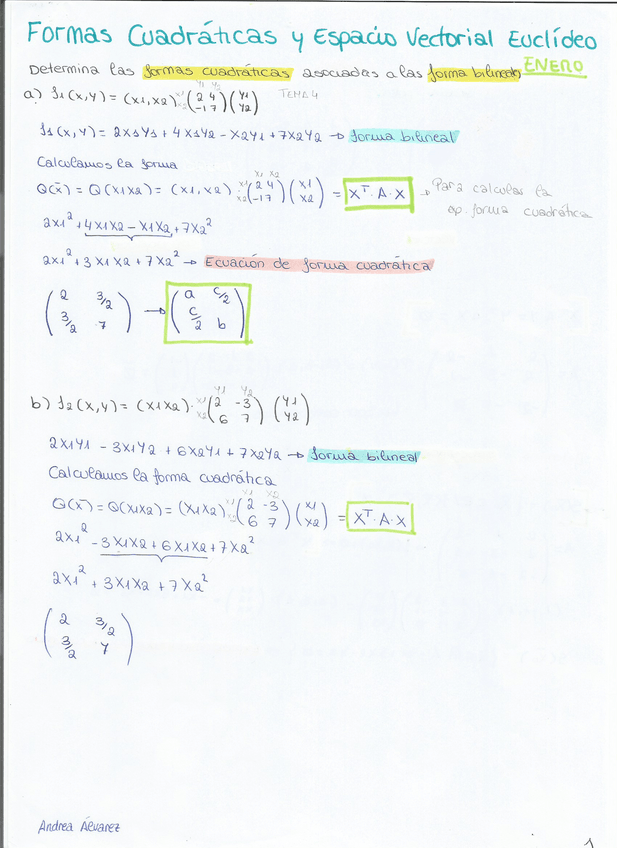 Formas Cuadráticas y Espacio Vectorial Euclídeo
ENERO
Determina las formas cuadráticas asociadas a las forma bilineales
TEMA 4
y1 y2
a) f1(x,y) = (x1,x2) x1 x2 (2 4 -1 7) (y1 y2)
f1(x,y) = 2x1y1 + 4x1y2 - x2y1 + 7x2y2 → forma bilineal
Calculamos la forma
x1 x2
Q(x̄) = Q(x1x2) = (x1,x2) x1 x2 (2 4 -1 7) (x1 x2) = X^T · A · X → Para calcular la
exp. forma cuadrática
2x1² + 4x1x2 - x1x2 + 7x2²
2x1² + 3x1x2 + 7x2² → Ecuación de forma cuadrática
(2 3/2) → (a c/2)
(3/2 7) (c/2 b)
y1 y2
b) f2(x,y) = (x1x2) · x1 x2 (2 -3 6 7) (y1 y2)
2x1y1 - 3x1y2 + 6x2y1 + 7x2y2 → forma bilineal
Calculamos la forma cuadrática
x1 x2
Q(x̄) = Q(x1x2) = (x1x2) x1 x2 (2 -3 6 7) (x1 x2) = X^T · A · X
2x1² - 3x1x2 + 6x1x2 + 7x2²
2x1² + 3x1x2 + 7x2²
(2 3/2)
(3/2 7)
Andrea Álvarez
1